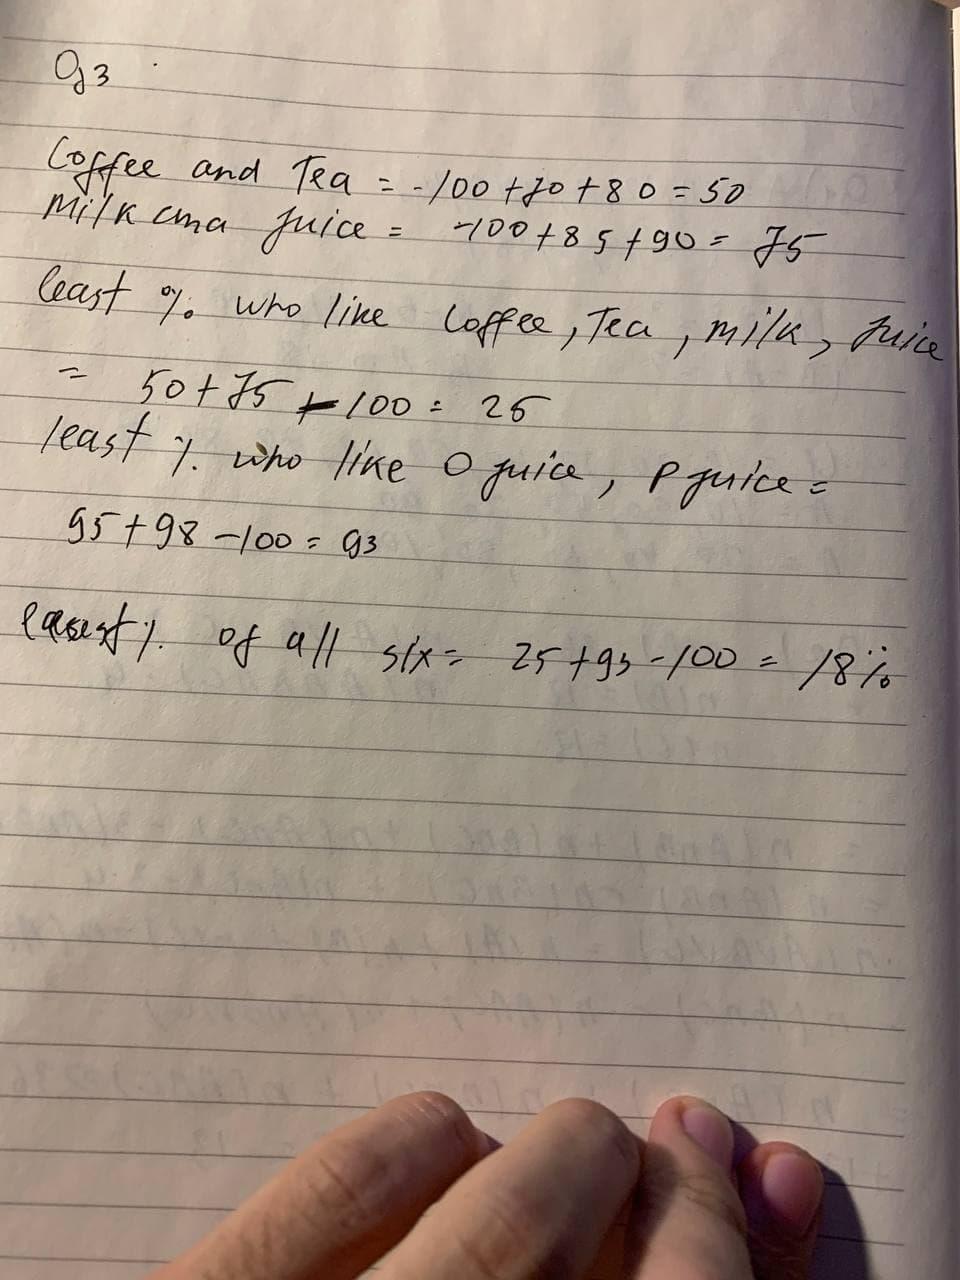 Q3
Coffee and Tea = -100 +70 +80 = 50
Milk and Juice = -100 + 85 + 90 = 75
least % who like Coffee, Tea, milk, Juice
= 50 + 75 - 100 = 25
least % who like O juice, P juice =
95 + 98 - 100 = 93
least % of all six = 25 + 93 - 100 = 18%